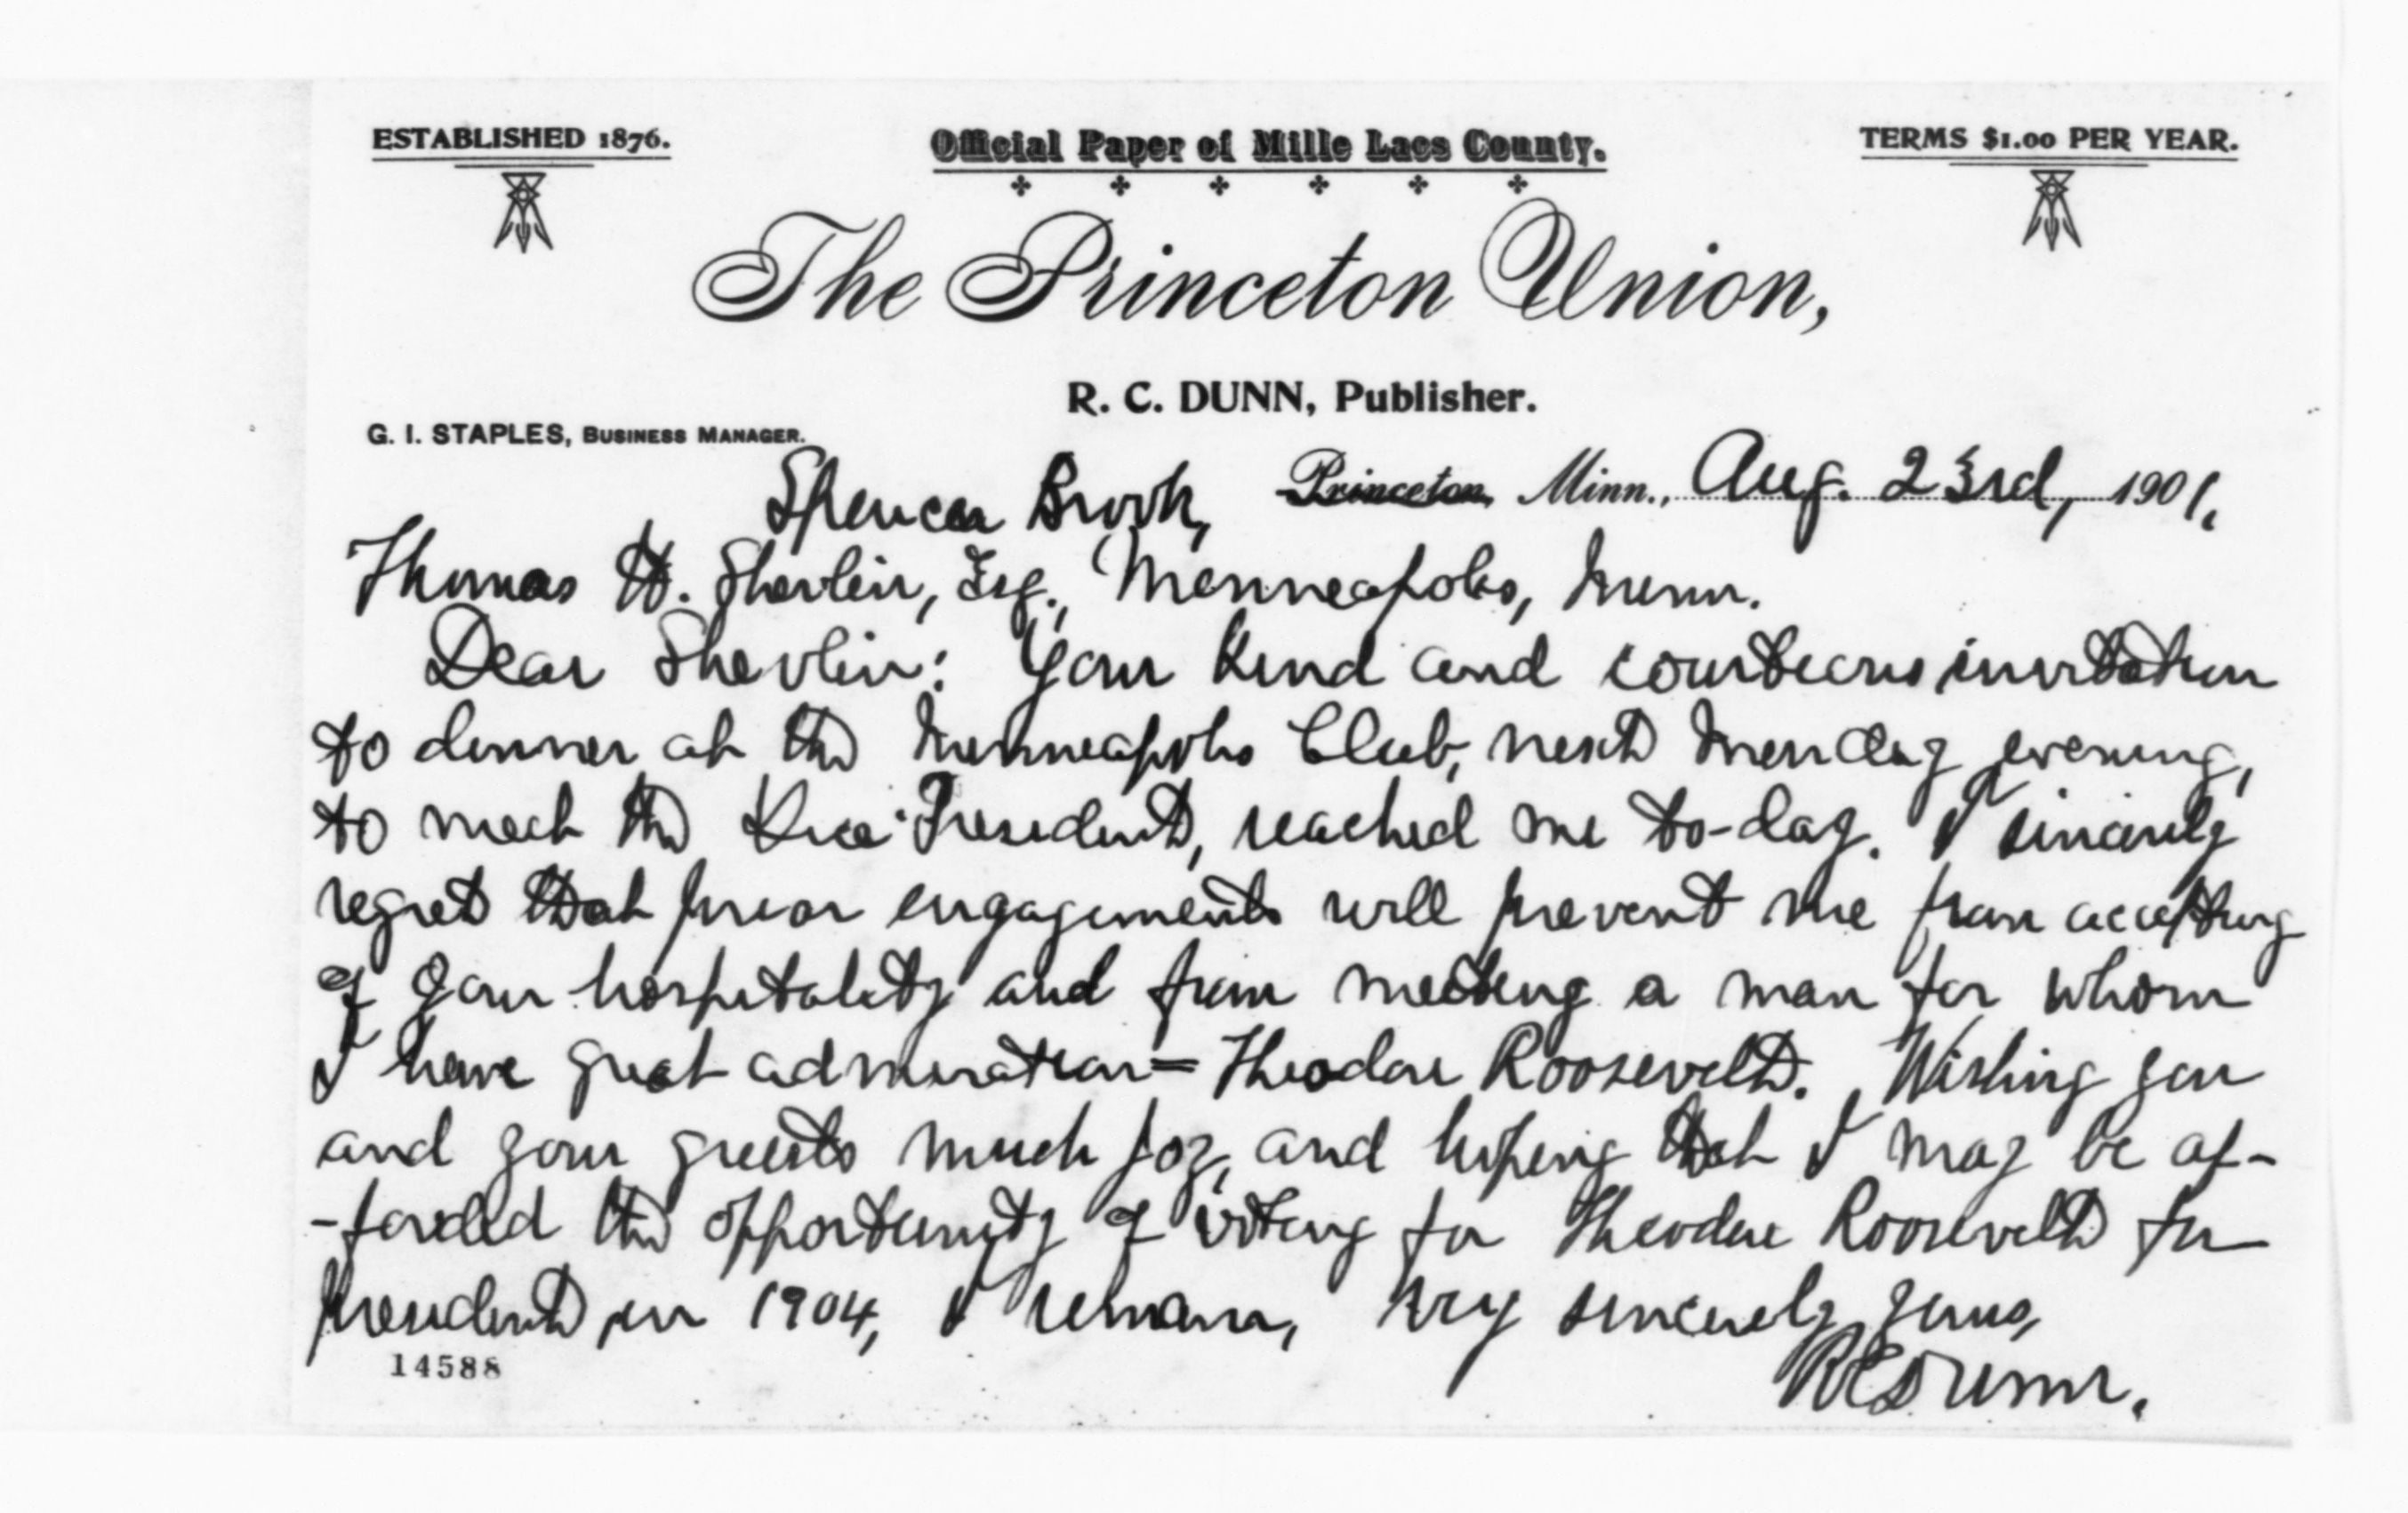 ESTABLISHED 1876.
Official Paper of Mille Lacs County.
TERMS $1.00 PER YEAR.
The Princeton Union,
R. C. DUNN, Publisher.
G. I. STAPLES, BUSINESS MANAGER.
Spencer Brook, Princeton, Minn., Aug. 23rd, 1901.
Thomas H. Shevlin, Esq., Minneapolis, Minn.
Dear Shevlin: Your kind and courteous invitation
to dinner at the Minneapolis Club, next Monday evening,
to meet the Vice-President, reached me to-day. I sincerely
regret that prior engagements will prevent me from accepting
of your hospitality and from meeting a man for whom
I have great admiration = Theodore Roosevelt. Wishing you
and your guests much joy, and hoping that I may be af-
-forded the opportunity of voting for Theodore Roosevelt for
president in 1904, I remain, Very sincerely yours,
RCDunn.
14588